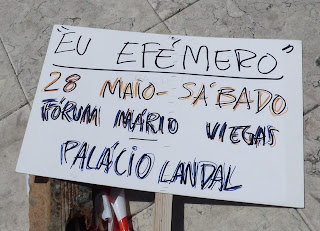 "EU EFÉMERO"
28 MAIO - SÁBADO
FÓRUM MÁRIO VIEGAS
PALÁCIO LANDAL